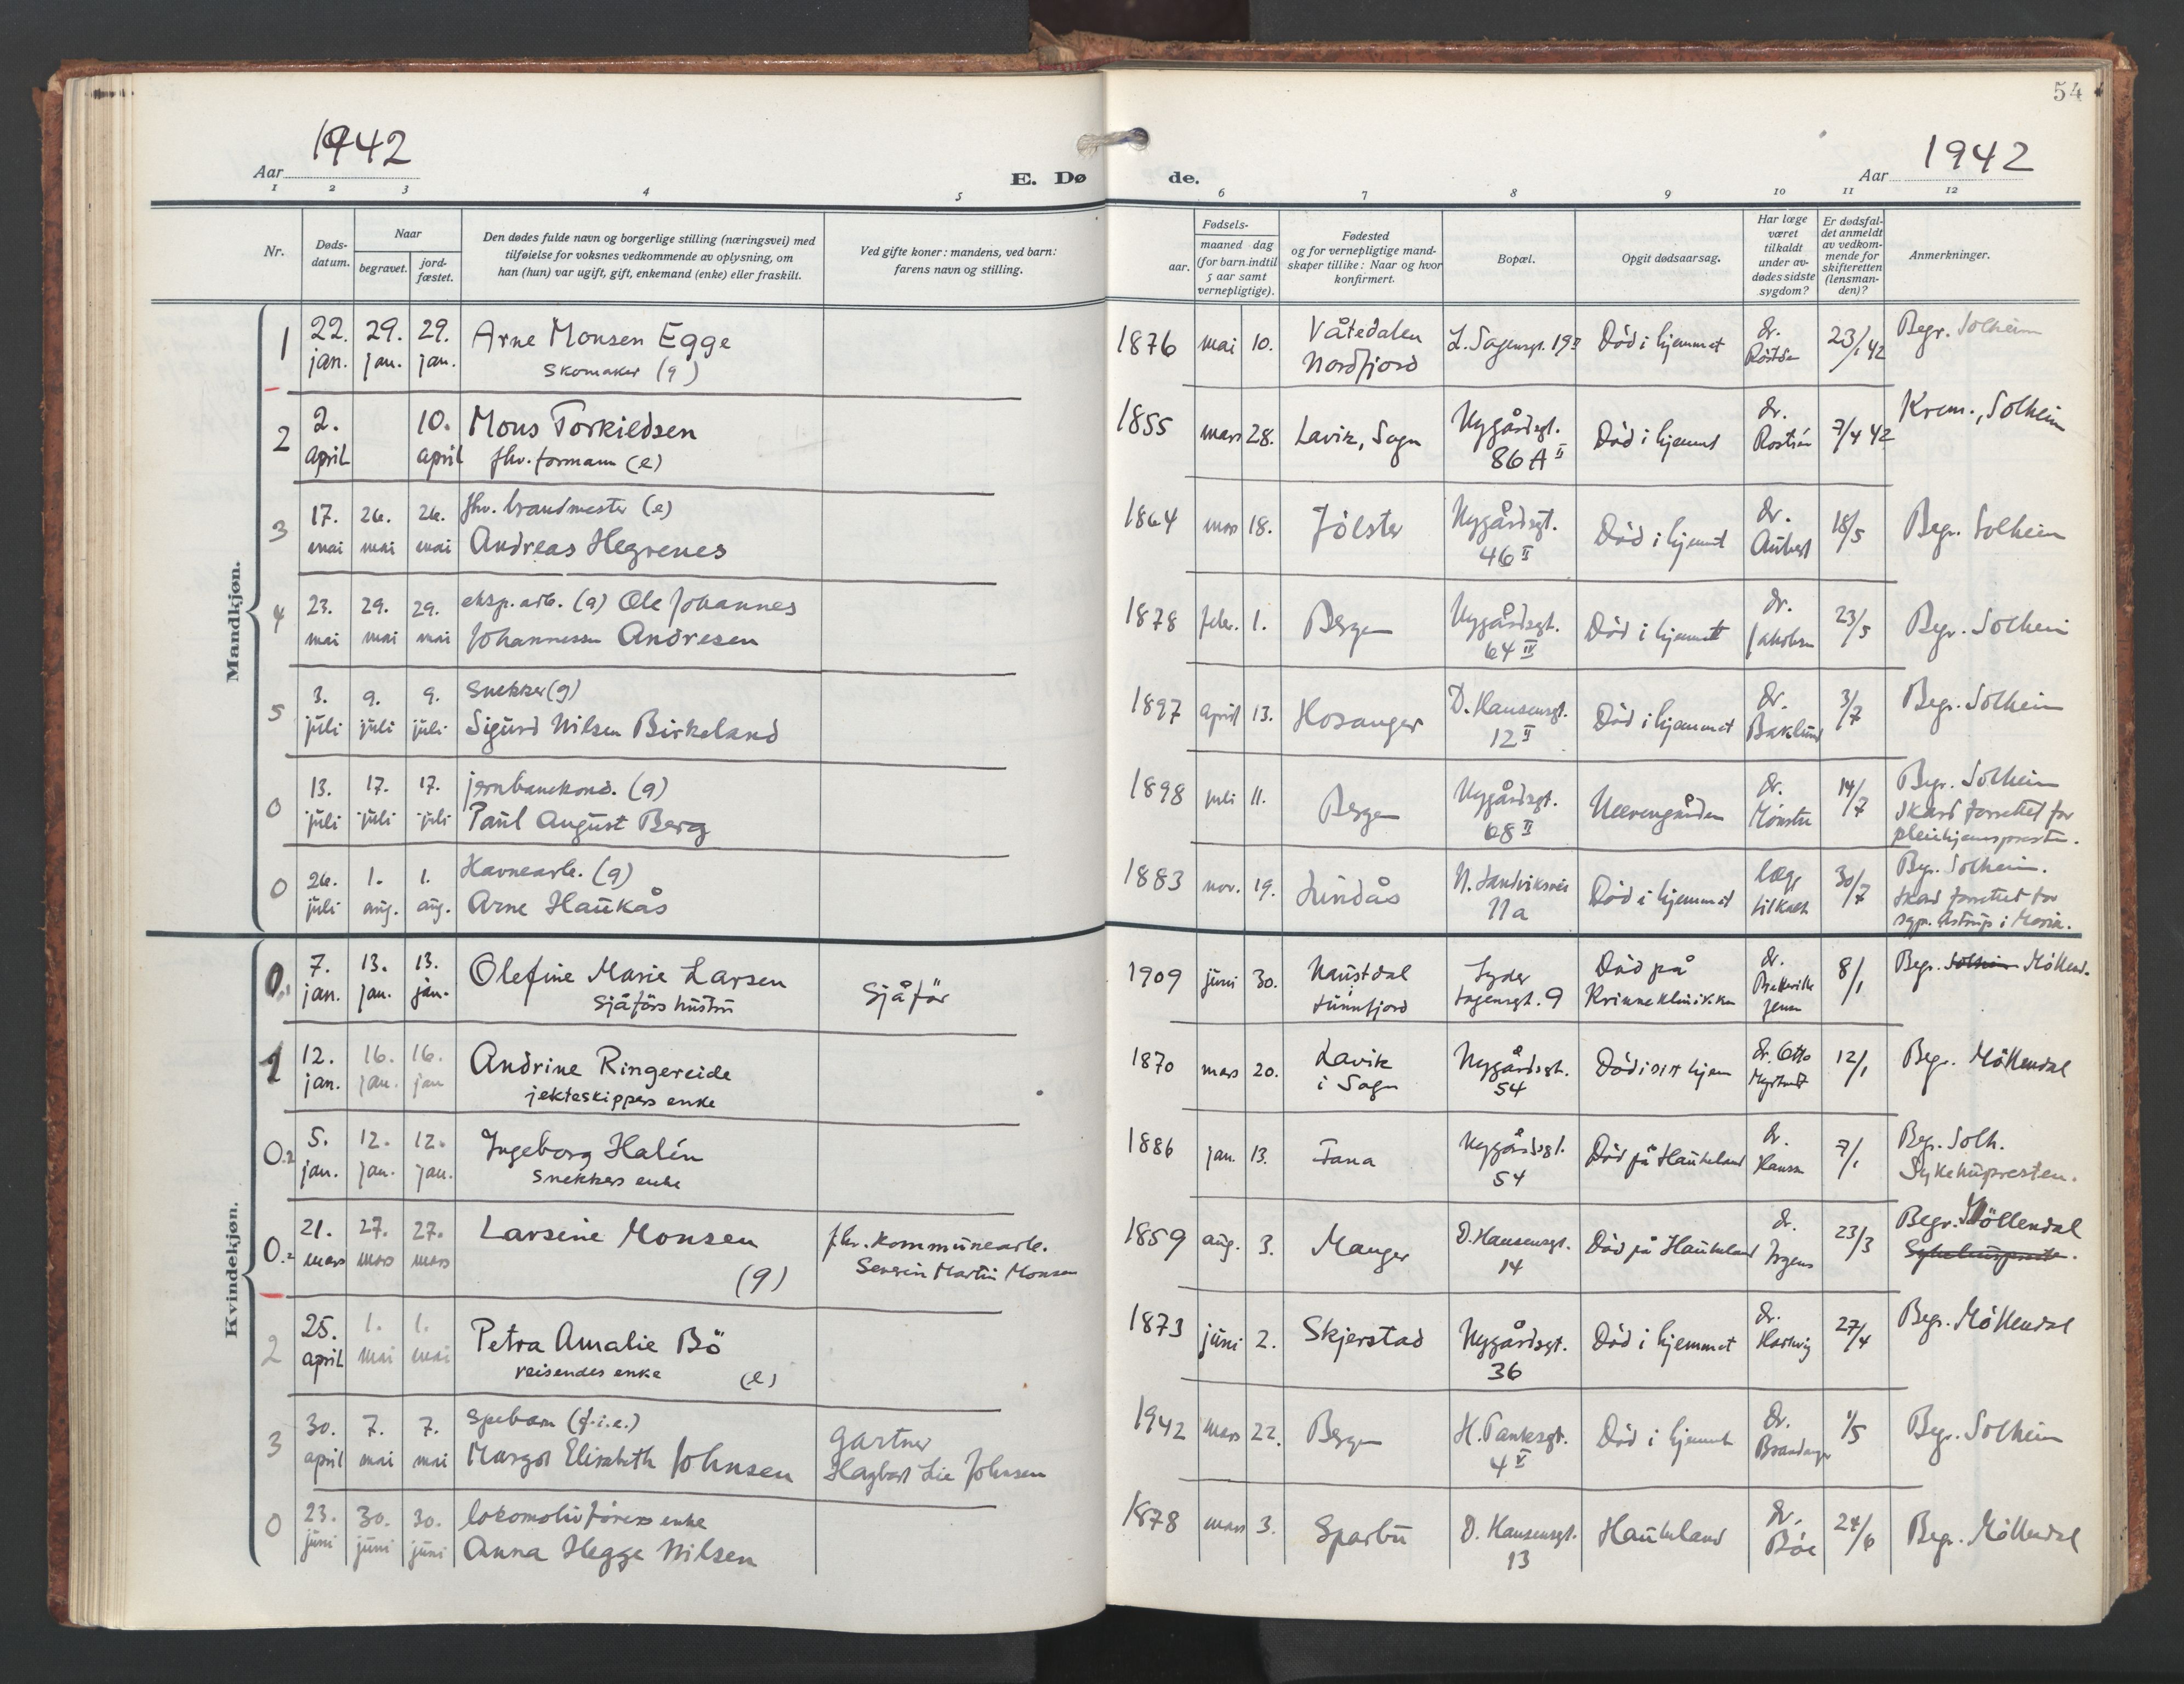 54
Aar 1942
E. Dø de.
Aar 1942
1 2 3 4 5 6 7 8 9 10 11 12
Nr.
Døds-
datum.
Naar
begravet.
jord-
fæstet.
Den dødes fulde navn og borgerlige stilling (næringsvei) med
tilføielse for voksnes vedkommende av oplysning, om
han (hun) var ugift, gift, enkemand (enke) eller fraskilt.
Ved gifte koner: mandens, ved barn:
farens navn og stilling.
Fødsels-
aar.
maaned dag
(for barn indtil
5 aar samt
vernepligtige).
Fødested
og for vernepligtige mand-
skaper tillike: Naar og hvor
konfirmert.
Bopæl.
Opgit dødsaarsag.
Har læge
været
tilkaldt
under av-
dødes sidste
sygdom?
Er dødsfal-
det anmeldt
av vedkom-
mende for
skifteretten
(lensman-
den)?
Anmerkninger.
Mandkjøn.
1 22. jan. 29. jan. 29. jan. Arne Monsen Egge
skomaker (g)
1876 mai 10. Våtedalen
Nordfjord
L. Sagensgt. 19 II Död i hjemmet dr. 23/1 42 Begr. Solheim
2 2. april 10. april Mons Torkildsen
fhv. formann (e)
1855 mars 28. Lavik, Sogn Nygårdsgt.
86 A II
Död i hjemmet dr. 7/4 42 Krem., Solheim
3 17. mai 26. mai 26. mai fhv. brandmester (e)
Andreas Hegrenes
1864 mars 18. Jölster Nygårdsgt.
46 II
Död i hjemmet dr. 18/5 Begr. Solheim
4 23. mai 29. mai 29. mai eksp.arb. (g) Ole Johannes
Johannessen Andresen
1878 febr. 1. Bergen Nygårdsgt.
64 IV
Död i hjemmet dr. Jakobsen 23/5 Begr. Solheim
5 3. juli 9. juli 9. juli Snekker (g)
Sigurd Nilsen Birkeland
1897 april 13. Hosanger D. Hansensgt.
12 II
Död i hjemmet dr. Baklund 3/7 Begr. Solheim
0 13. juli 17. juli 17. juli jernbanekond. (g)
Paul August Berg
1898 juli 11. Bergen Nygårdsgt.
68 II
Neevengården dr. 14/7 Begr. Solheim
Skard forrettet for
pleiehjemspresten.
0 26. juli 1. aug. 1. aug. Havnearb. (g)
Arne Haukås
1883 nov. 19. Lindås N. Sandviksvei
11a
Död i hjemmet lege
tilkalt
30/7 Begr. Solheim.
Skard forrettet for
sgpr. Astrup i Maria.
Kvindekjøn.
0. 7. jan. 13. jan. 13. jan. Olefine Marie Larsen
Sjåförs hustru
Sjåför
1909 juni 30. Naustdal
i Sunnfjord
Lyder
Sagensgt. 9
Död på
Kvinneklinikken
dr. 8/1 Begr. Solheim Möllend.
1 12. jan. 16. jan. 16. jan Andrine Ringereide
jekteskippers enke
1870 mars 20. Lavik
i Sogn
Nygårdsgt.
54
Död i sitt hjem dr. Otto 12/1 Begr. Möllendal
0.2 5. jan. 12. jan. 12. jan. Ingeborg Halén
Snekkers enke
1886 jan. 13. Fana Nygårdsgt.
54
Död på Haukeland dr. Hanssen 7/1 Begr. Solh.
Sykehuspresten.
0. 21. mars 27. mars 27. mars Larsine Monsen
(g)
fhv. kommunearb.
Severin Martin Monsen
1859 aug. 3. Manger D. Hansensgt.
14
Död på Haukeland dr. Irgens 23/3 Begr. Möllendal
Sykehuspresten.
2 25. april 1. mai 1. mai Petra Amalie Bö
reisendes enke (e)
1873 juni 2. Skjerstad Nygårdsgt.
36
Död i hjemmet dr. Hartvig 27/4 Begr. Möllendal
3 30. april 7. mai 7. mai Spebarn (f.i.e.)
Margot Elisabeth Johnsen
gartner
Hagbart Lie Johnsen
1942 mars 22. Bergen H. Tanksgt.
4 V
Död i hjemmet dr. 1/5 Begr. Solheim
0 23. juni 30. juni 30. juni lokomotivförers enke
Anna Hegge Nilsen
1878 mars 3. Sparbu D. Hansensgt.
13
Haukeland dr. Böe 24/6 Begr. Möllendal